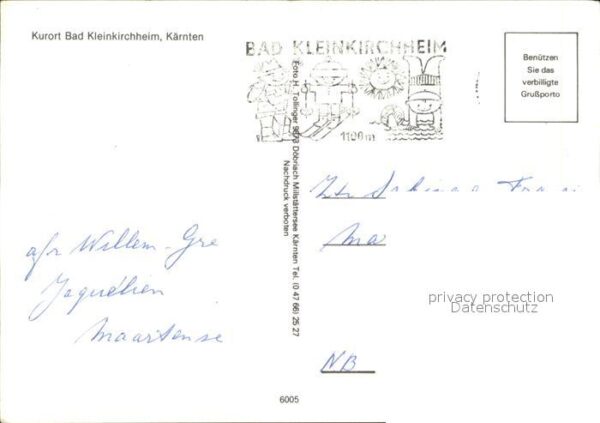 Kurort Bad Kleinkirchheim, Kärnten
BAD KLEINKIRCHHEIM
1100 m
Benützen
Sie das
verbilligte
Grußporto
Foto H. Tollinger 9873 Döbriach Millstättersee Kärnten Tel. (0 47 66) 25 27
Nachdruck verboten
afz Willem-Gré
Jaquelien
Maartense
Ma
privacy protection
Datenschutz
NB
6005